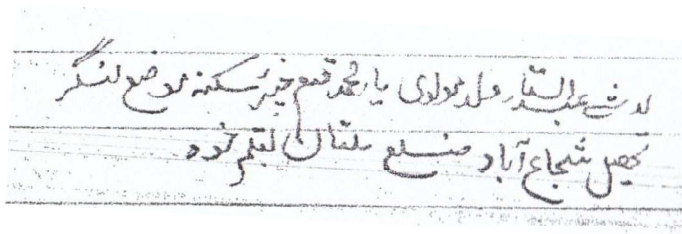 عبدالستار ولد مولوی یار محمد قوم سکنہ موضع لنگر
تحصیل شجاع آباد ضلع ملتان بقلم خود